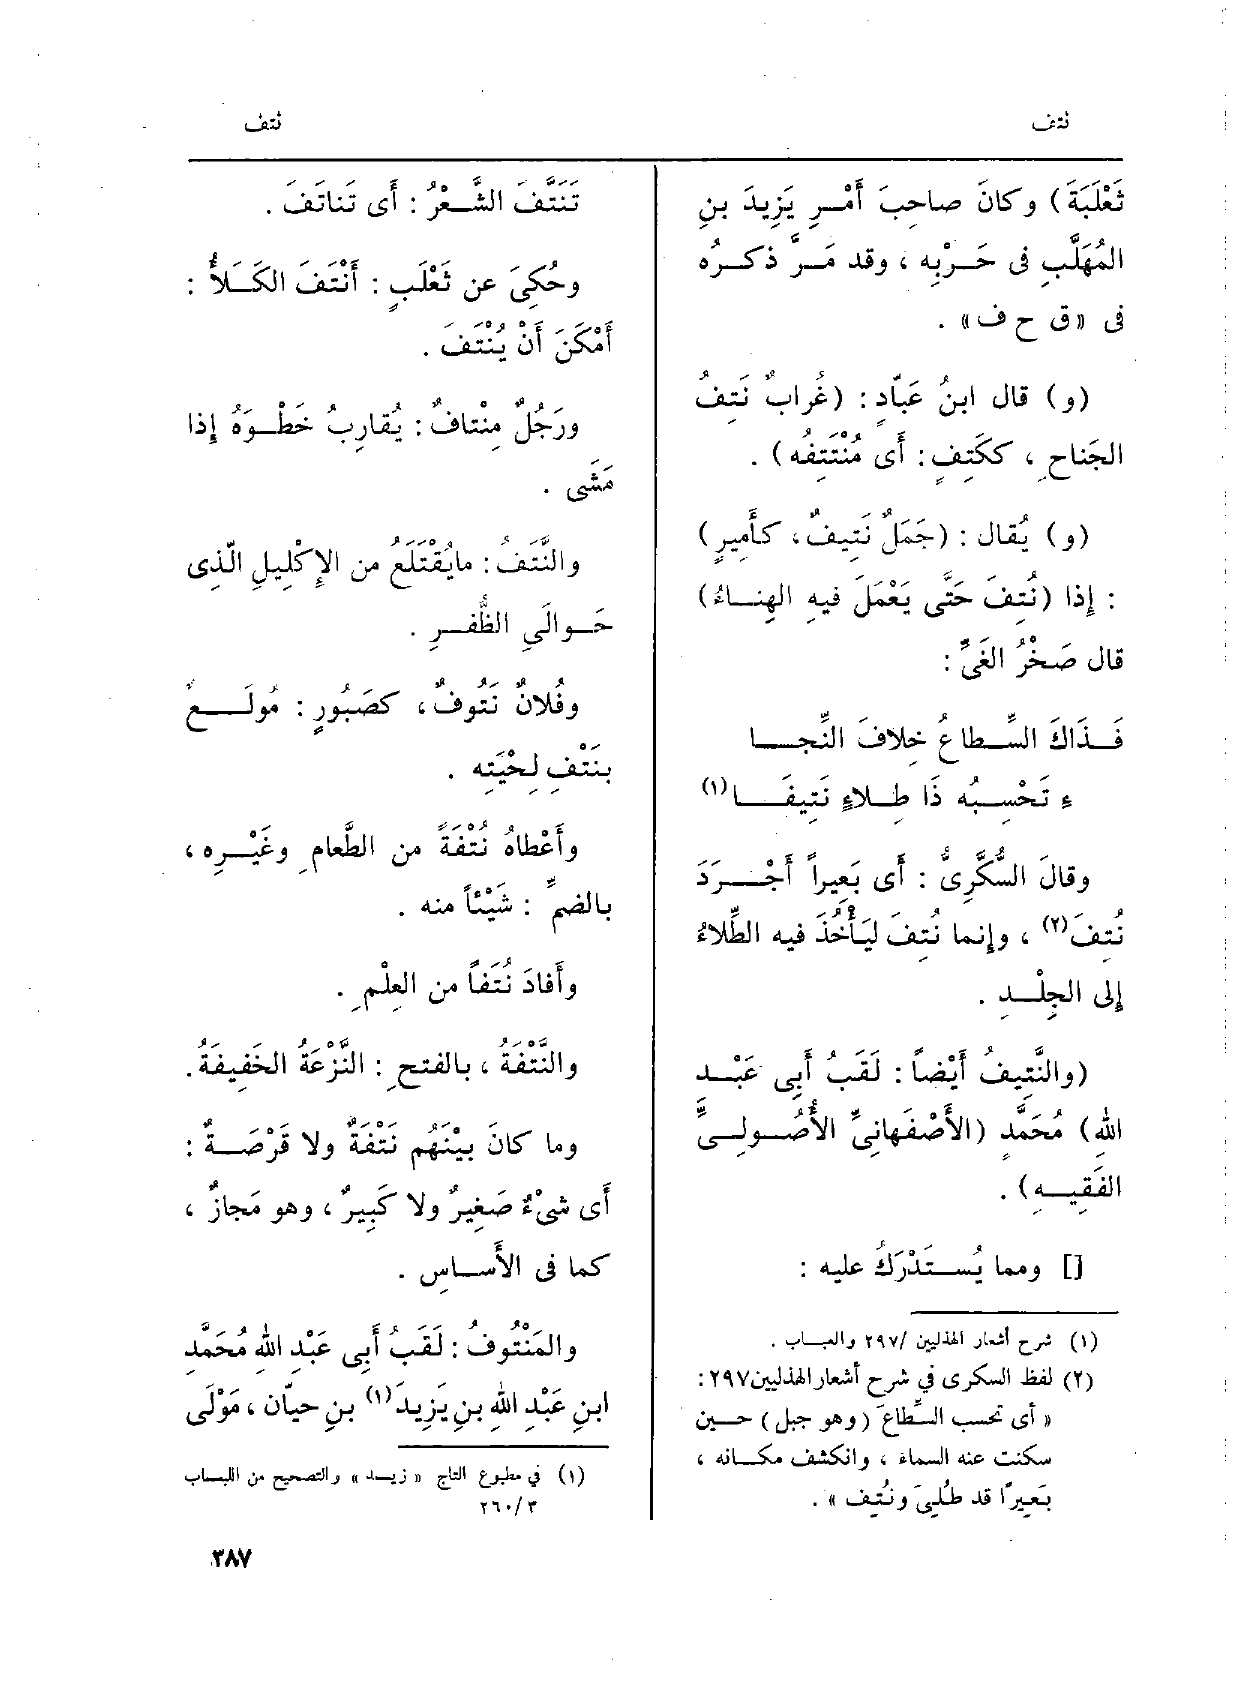 نتف
نتف
ثَعْلَبَةَ) وكانَ صاحِبَ أَمْرِ يَزِيدَ بنِ
المُهَلَّبِ فى حَرْبِه ، وقد مَرَّ ذكرُه
فى «ق ح ف» .
(و) قال ابنُ عَبّادٍ : (غُرابٌ نَتِفُ
الجَناحِ ، ككَتِفٍ : أَى مُنْتَتِفُه) .
(و) يُقال : (جَمَلٌ نَتِيفٌ، كأَمِيرٍ)
: إذا (نُتِفَ حَتَّى يَعْمَلَ فيهِ الهِناءُ)
قال صَخْرُ الغَىِّ :
فَذَاكَ السِّطاعُ خِلافَ النِّجا
ءِ تَحْسِبُه ذَا طِلاءٍ نَتِيفَا(١)
وقالَ السُّكَّرِىُّ : أَى بَعِيراً أَجْرَدَ
نُتِفَ(٢) ، وإنما نُتِفَ ليَأْخُذَ فيه الطِّلاءُ
إلى الجِلْدِ .
(والنَّتِيفُ أَيْضاً : لَقَبُ أَبِى عَبْدِ
اللهِ) مُحَمَّدٍ (الأَصْفَهانِىِّ الأُصُولِىِّ
الفَقِيهِ) .
[] ومما يُسْتَدْرَكُ عليه :
(١) شرح أشعار الهذليين /٢٩٧ والعباب .
(٢) لفظ السكرى في شرح أشعار الهذليين ٢٩٧ :
« أى تحسب السِّطاعَ (وهو جبل) حين
سكنت عنه السماء ، وانكشف مكانه ،
بَعِيرًا قد طُلِىَ ونُتِف » .
تَنَتَّفَ الشَّعْرُ : أَى تَناتَفَ .
وحُكِىَ عن ثَعْلَبٍ : أَنْتَفَ الكَلَأُ :
أَمْكَنَ أَنْ يُنْتَفَ .
ورَجُلٌ مِنْتافٌ : يُقارِبُ خَطْوَهُ إذا
مَشَى .
والنَّتَفُ : مايُقْتَلَعُ من الإِكْلِيلِ الّذِى
حَوالَىِ الظُّفرِ .
وفُلانٌ نَتُوفٌ، كصَبُورٍ : مُولَعٌ
بنَتْفِ لِحْيَتِه .
وأَعْطاهُ نُتْفَةً من الطَّعامِ وغَيْرِه ،
بالضمِّ : شَيْئاً منه .
وأَفادَ نُتَفاً من العِلْمِ .
والنَّتْفَةُ ، بالفتحِ : النَّزْعَةُ الخَفِيفَةُ.
وما كانَ بيْنَهُم نَتْفَةٌ ولا قَرْصَةٌ :
أَى شىْءٌ صَغِيرٌ ولا كَبِيرٌ ، وهو مَجازٌ ،
كما فى الأَساسِ .
والمَنْتُوفُ : لَقَبُ أَبِى عَبْدِ اللهِ مُحَمَّدِ
ابنِ عَبْدِ اللهِ بنِ يَزِيدَ(١) بنِ حيّان ، مَوْلَى
(١) في مطبوع التاج « زيد » والتصحيح من اللباب
٣/ ٢٦٠
٣٨٧